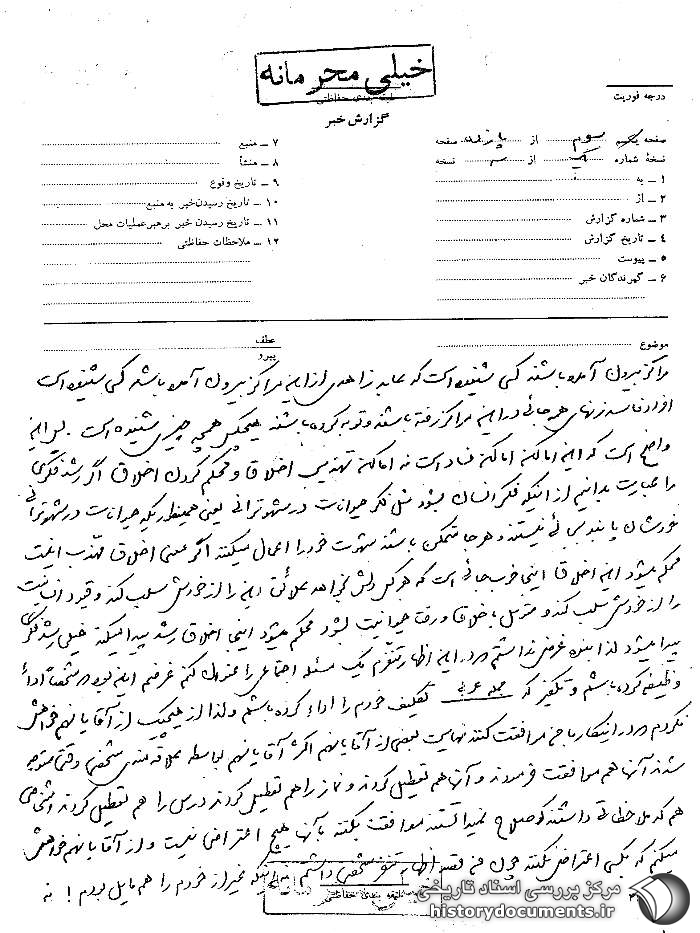 خیلی محرمانه
طبقه بندی حفاظتی
گزارش خبر
درجه فوریت
صفحه سوم از پانزده صفحه
نسخهٔ شماره یک از نسخه
۱ ــ به
۲ ــ از
۳ ــ شماره گزارش
۴ ــ تاریخ گزارش
۵ ــ پیوست
۶ ــ گیرندگان خبر
۷ ــ منبع
۸ ــ منشأ
۹ ــ تاریخ وقوع
۱۰ ــ تاریخ رسیدن خبر به منبع
۱۱ ــ تاریخ رسیدن خبر برهبر عملیات محل
۱۲ ــ ملاحظات حفاظتی
موضوع
عطف
پیرو
مراکز بیرون آمده باشند کسی شنیده است که عابد زاهدی از این مراکز بیرون آمده باشد کسی شنیده است
افراد فاسد زنهای هرجائی در این مراکز رفته باشند و توبه کرده باشند هیچکس همچه چیزی نشنیده است . پس این
واضح است که این اماکن اماکن فساد است نه اماکن تهذیب اخلاق و محکم کردن اخلاق اگر رشد فکری
را عبارت بدانیم از اینکه فکر انسان بشود مثل فکر حیوانات در شهوترانی یعنی همینطور که حیوانات در شهوترانی
خودشان پابند بجائی نیستند و هرجا متمکن باشند شهوت خود را اعمال میکنند اگر معنی اخلاق مهذب اینست
محکم میشود این اخلاق اینجا خوب جائی است که هر کس دلش بخواهد علائق دین را از خودش سلب کند و قیود انسانیت
را از خودش سلب کند و متوسل باخلاق و رقاء حیوانیت بشود محکم میشود اینجا اخلاق رشد پیدا میکند خیلی رشد فکری
پیدا میشود لذا بنده غرضی نداشتم در این اظهار تنفرم یک مسئله اجتماعی را عنوان کنم غرضم این بود شخصاً اداء
وظیفه کرده باشم و بگویم که جمله عربی تکلیف خودم را اداء کرده باشم و لذا از هیچیک از آقایان هم خواهش
نکردم در اینکار با من موافقت کنند نهایت بعضی از آقایان هم اکثر آقایان هم بواسطه علاقه مندی شخصی وقتی متوجه
شدند آنها هم موافقت فرمودند و آنها هم تعطیل کردند و نماز را هم تعطیل کردند درس را هم تعطیل کردند اشخاصی
هم که ملاحظاتی داشتند که صلاح نمیدانستند موافقت بکنند بآنها هیچ اعتراضی نیست و از آقایان هم خواهش
میکنم که بکسی اعتراض نکنند چون من قصد اظهار تنفر شخصی داشتم نه اینکه غیر از خودم را هم مایل بودم ! نه
طبقه بندی حفاظتی
مرکز بررسی اسناد تاریخی
historydocuments.ir